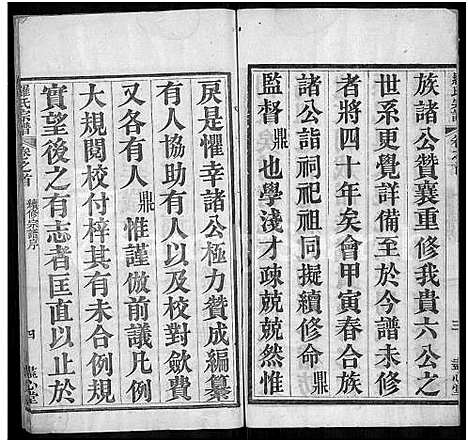 族諸公贊襄重修我貴六公之
世系更覺詳備至於今譜未修
者將四十年矣會甲寅春合族
諸公詣祠祀祖同擬續修命鼎
監督鼎也學淺才疎兢兢焉惟
戾是懼幸諸公極力贊成編纂
有人協助有人以及校對斂費
者有人鼎惟謹倣前議凡例
大規閱校付梓其有未合例
實望後之有志者匡直以止於
羅氏宗譜
卷之首
續修宗譜序
四